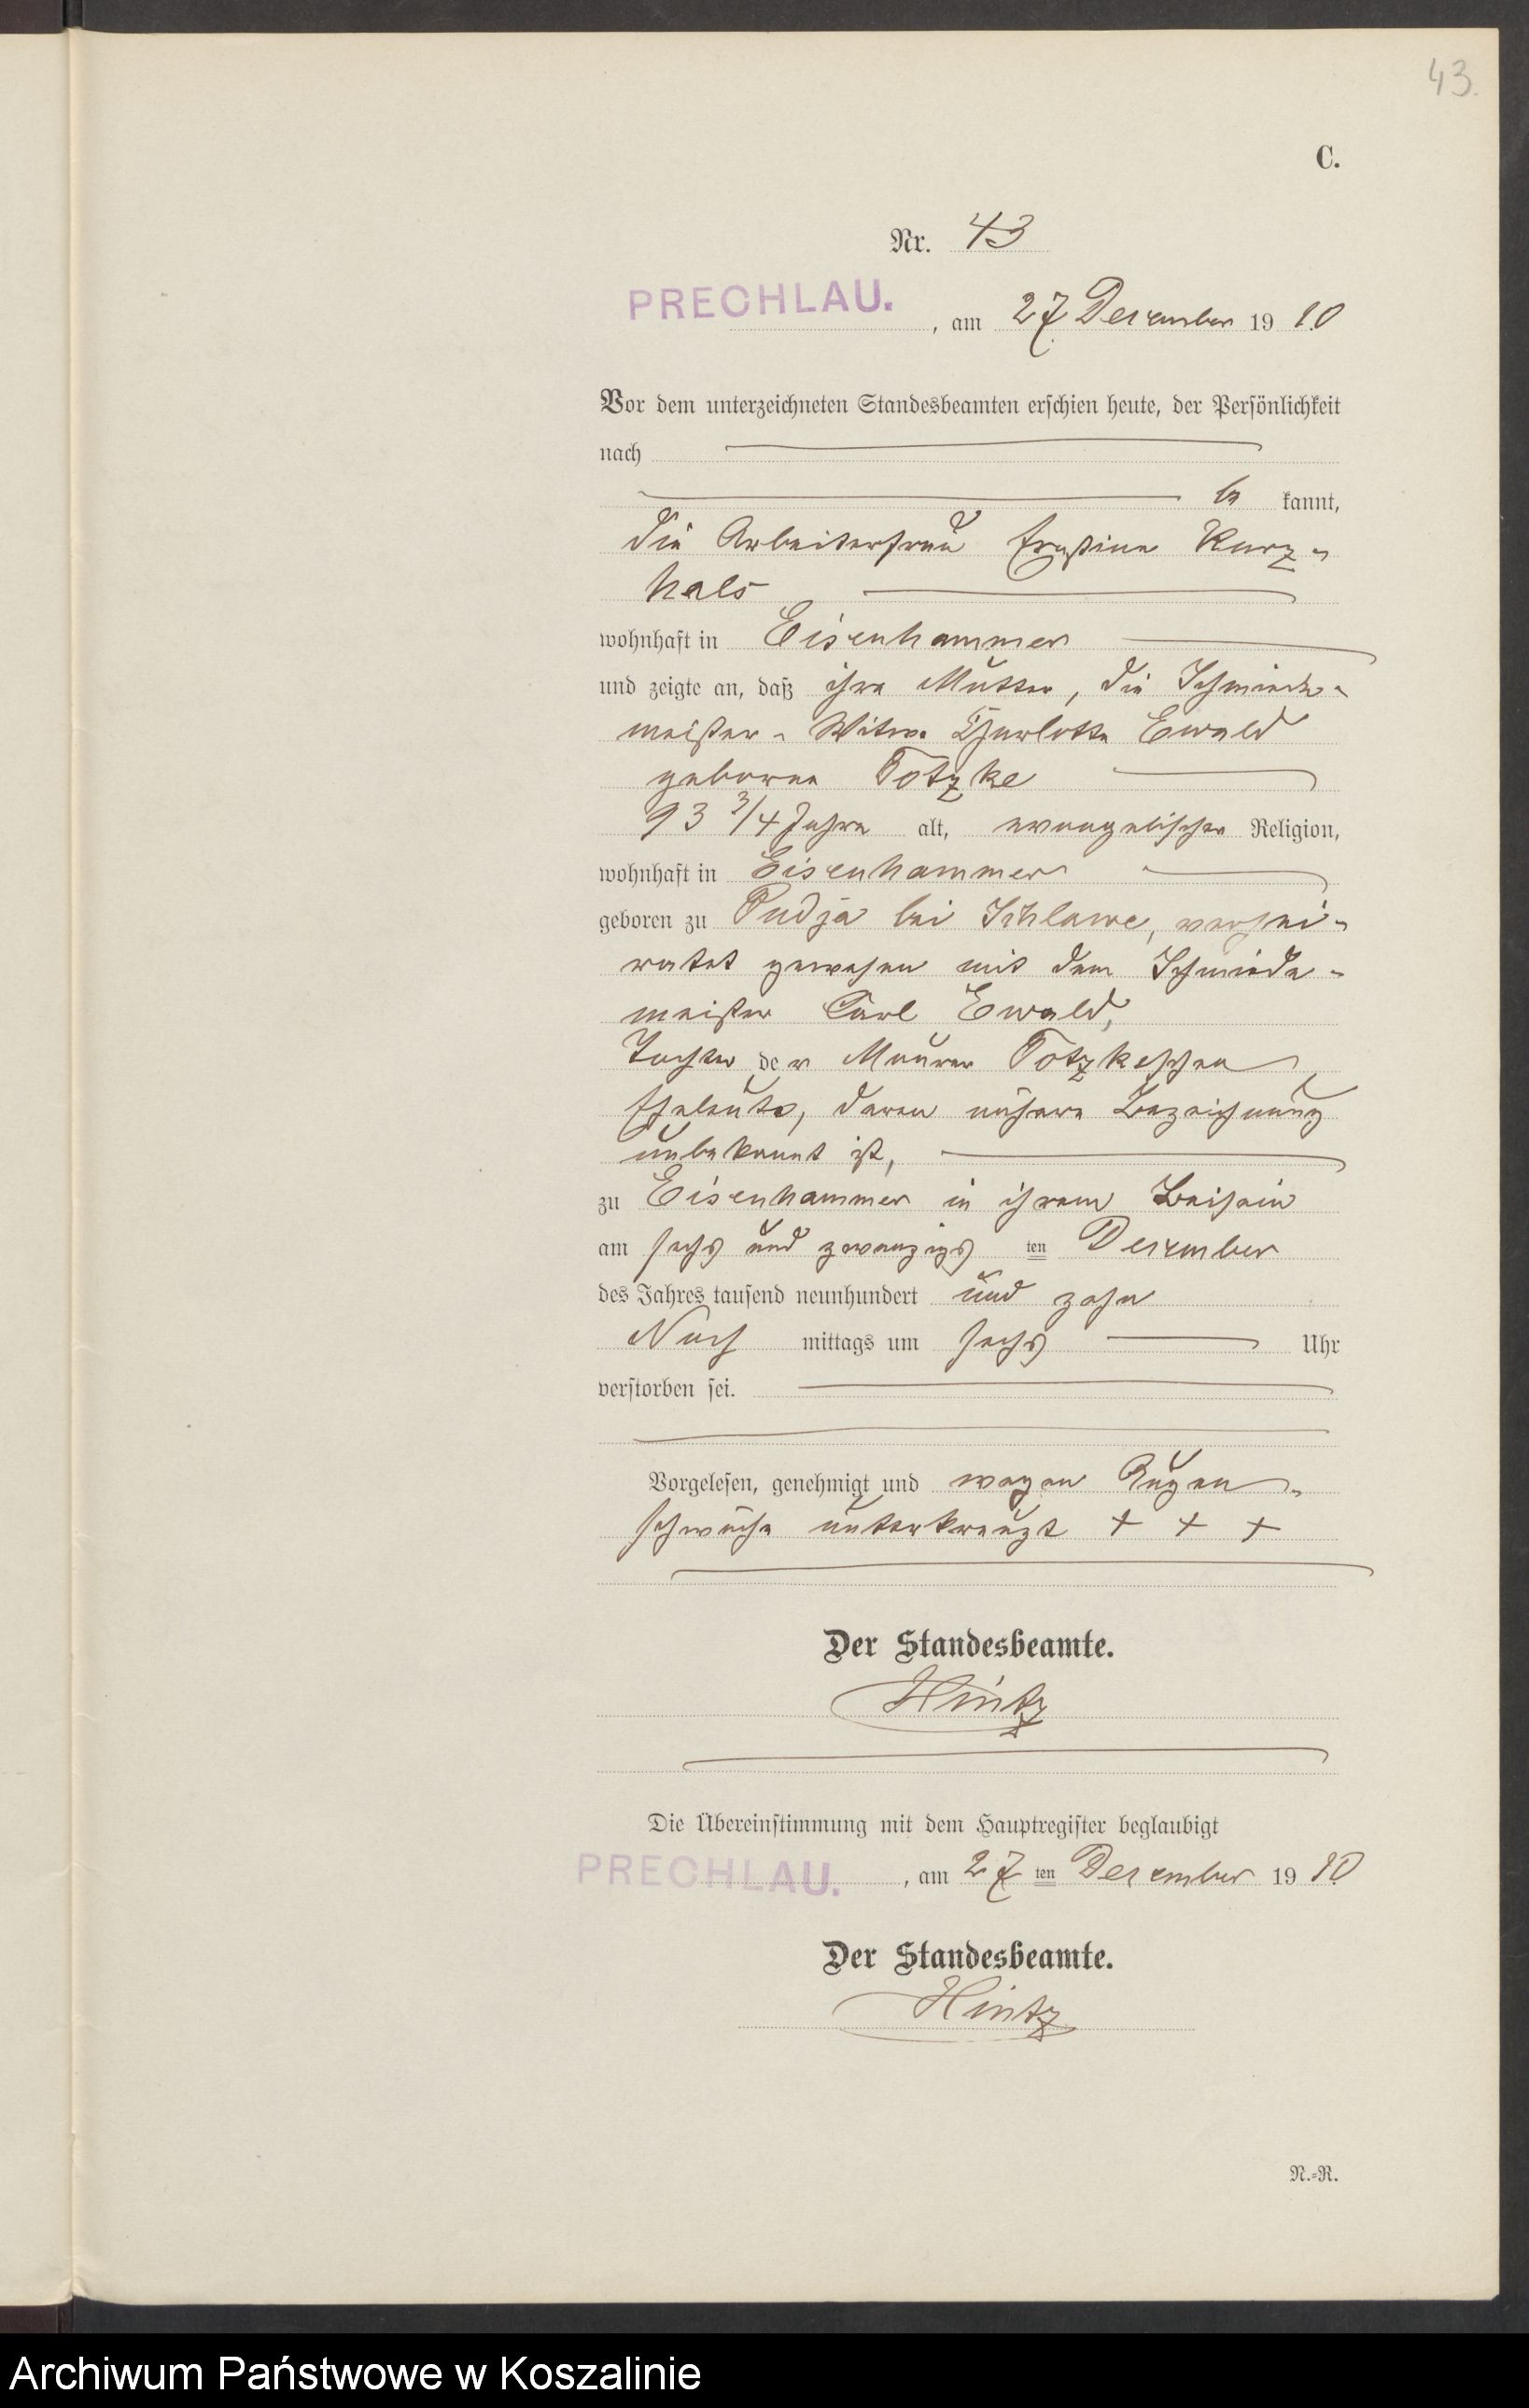 43.
C.
Nr. 43
PRECHLAU. , am 27 Dezember 19 10
Vor dem unterzeichneten Standesbeamten erschien heute, der Persönlichkeit
nach
be kannt,
die Arbeiterfrau Kurz-
hals
wohnhaft in Eisenhammer
und zeigte an, daß ihre Mutter, die Schmiede-
meister- Witwe Charlotte Ewald
geborene Totzke
93 3/4 Jahre alt, evangelischer Religion,
wohnhaft in Eisenhammer
geboren zu bei Schlawe, verhei-
ratet gewesen mit dem Schmiede-
meister Carl Ewald,
Tochter der Maurer Totzkeschen
Eheleute, deren nähere Bezeichnung
unbekannt ist,
zu Eisenhammer in ihrem Beisein
am sechs und zwanzigs ten Dezember
des Jahres tausend neunhundert und zehn
Nach mittags um sechs Uhr
verstorben sei.
Vorgelesen, genehmigt und wegen Augen-
schwäche unterkreuzt + + +
Der Standesbeamte.
Hintz
Die Übereinstimmung mit dem Hauptregister beglaubigt
PRECHLAU. , am 27 ten Dezember 19 10
Der Standesbeamte.
Hintz
N.-R.
Archiwum Państwowe w Koszalinie